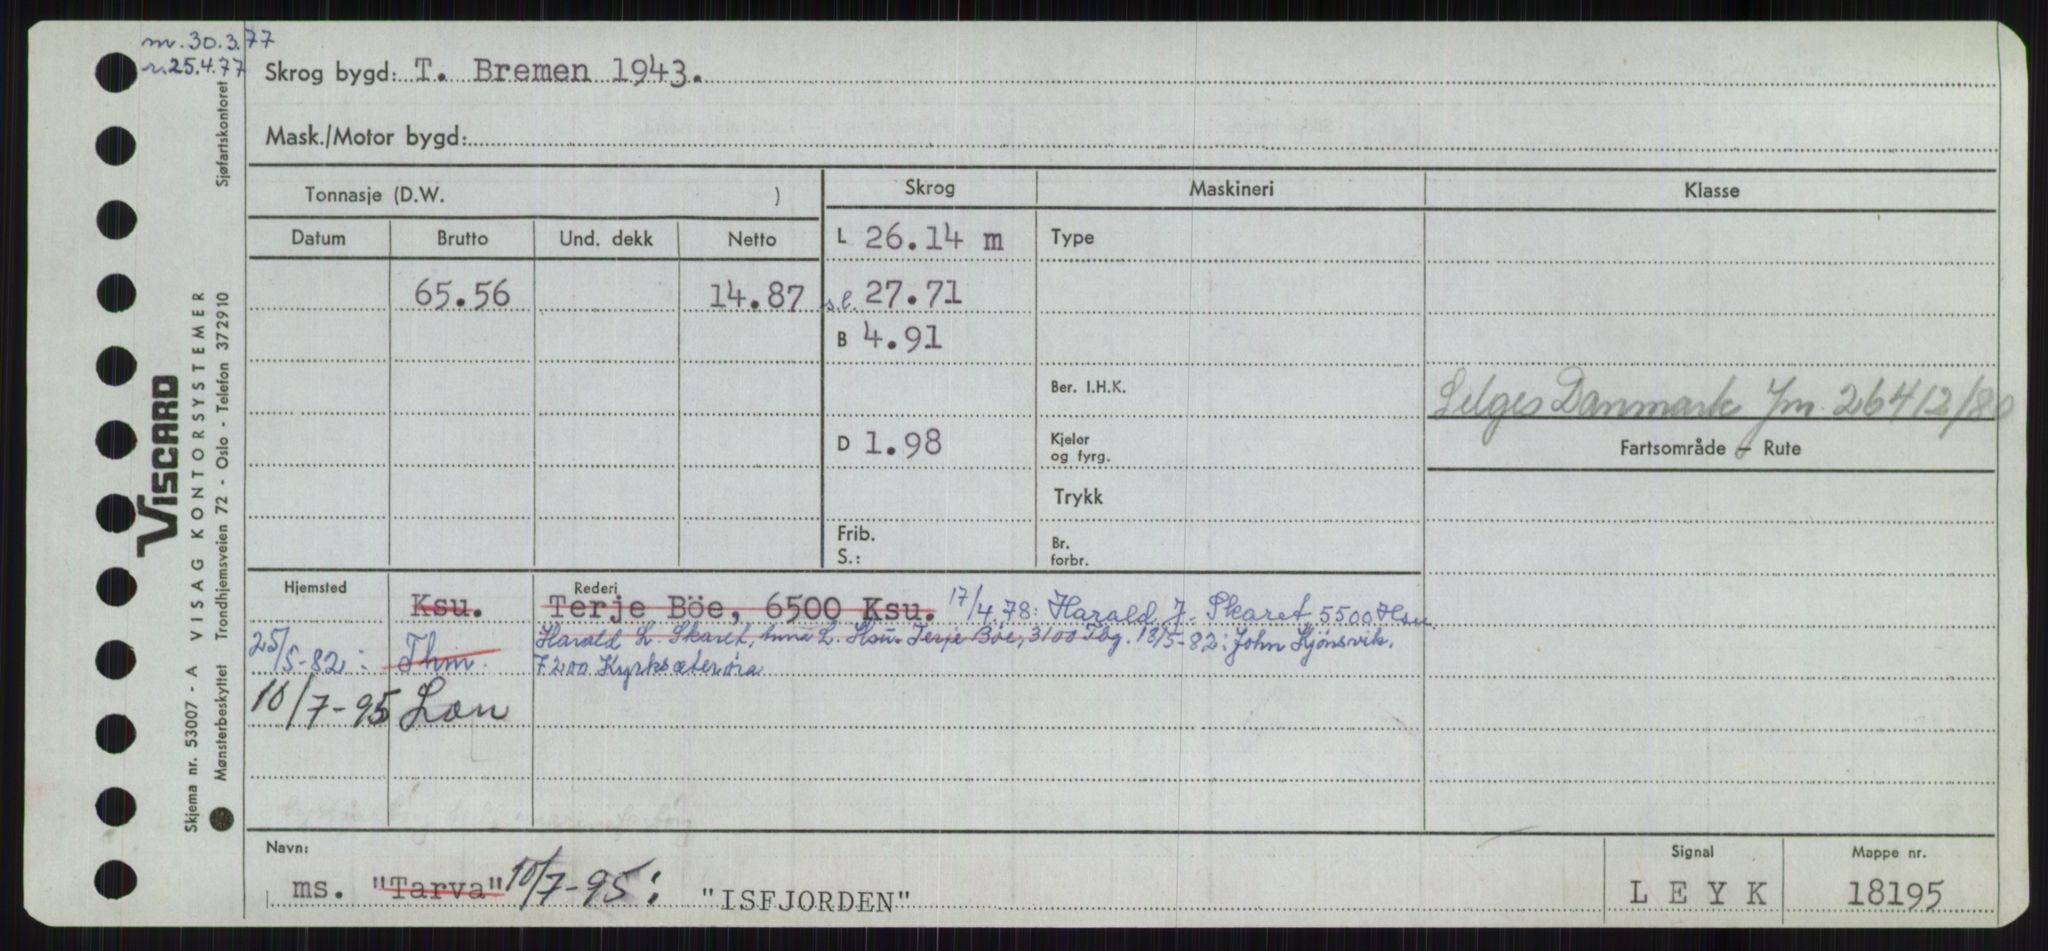 m. 30.3.77
r. 25.4.77
Skrog bygd: T. Bremen 1943.
Mask./Motor bygd:
Tonnasje (D.W. )
Skrog
Maskineri
Klasse
Datum Brutto Und. dekk Netto
L 26.14 m
Type
65.56 14.87
s.l. 27.71
B 4.91
Ber. I.H.K.
Selges Danmark Jm 2641 2/80
D 1.98
Kjeler
og fyrg.
Fartsområde - Rute
Trykk
Frib.
S.:
Br.
forbr.
Hjemsted
Rederi
Ksu. Terje Böe, 6500 Ksu. 17/4.78: Harald J. Skaret, 5500 Hsu.
25/5-82: Thm. Harald L. Skaret, Anna L. Hsu. Terje Böe, 3100 Tbg. 18/5-82: John Kjönsvik,
7200 Kyrksæterøra
10/7-95 Lon
Navn:
ms. "Tarva" 10/7-95: "ISFJORDEN"
Signal
L E Y K
Mappe nr.
18195
VISCARD
VISAG KONTORSYSTEMER
Skjema nr. 53007 - A
Mønsterbeskyttet Trondhjemsveien 72 - Oslo - Telefon 372910
Sjøfartskontoret